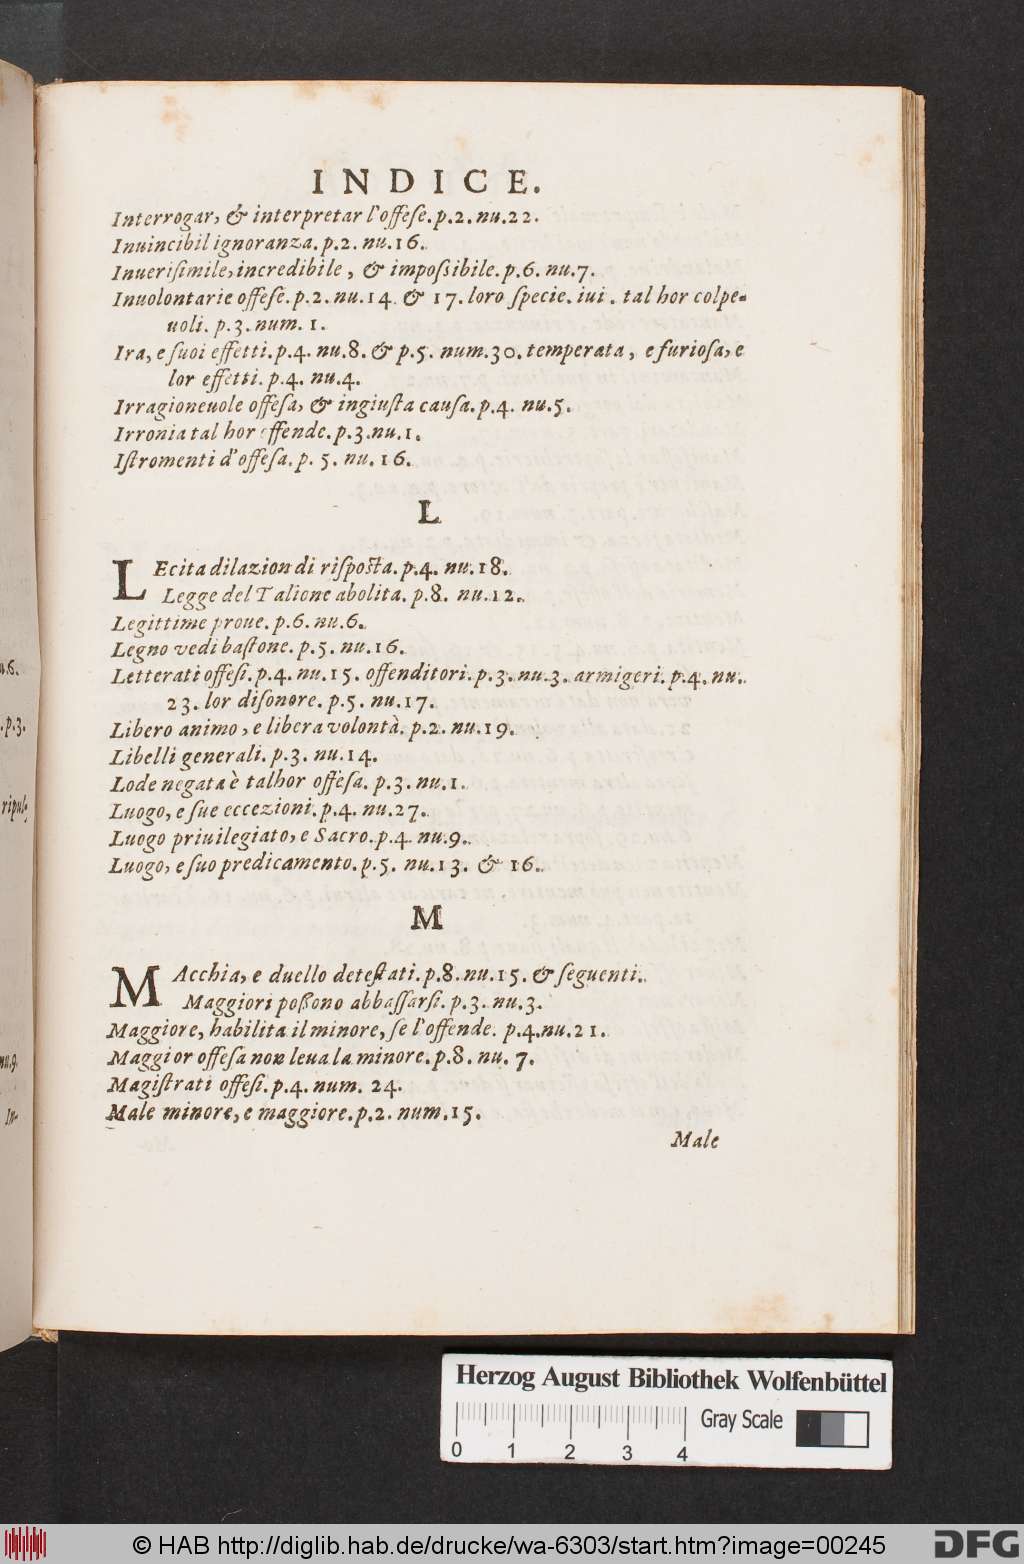 INDICE.
Interrogar, & interpretar l'offese. p.2. nu.22.
Inuincibil ignoranza. p.2. nu.16.
Inuerisimile, incredibile, & impossibile. p.6. nu.7.
Inuolontarie offese. p.2. nu.14. & 17. loro specie. iui. tal hor colpe-
uoli. p.3. num. 1.
Ira, e suoi effetti. p.4. nu.8. & p.5. num.30. temperata, e furiosa, e
lor effetti. p.4. nu.4.
Irragioneuole offesa, & ingiusta causa. p.4. nu.5.
Irronia tal hor offende. p.3. nu.1.
Istromenti d'offesa. p. 5. nu. 16.
L
LEcita dilazion di risposta. p.4. nu.18.
Legge del Talione abolita. p.8. nu.12.
Legittime proue. p.6. nu.6.
Legno vedi bastone. p.5. nu.16.
Letterati offesi. p.4. nu.15. offenditori. p.3. nu.3. armigeri. p.4. nu.
23. lor disonore. p.5. nu.17.
Libero animo, e libera volontà. p.2. nu.19.
Libelli generali. p.3. nu.14.
Lode negata è talhor offesa. p.3. nu.1.
Luogo, e sue eccezioni. p.4. nu.27.
Luogo priuilegiato, e Sacro. p.4. nu.9.
Luogo, e suo predicamento. p.5. nu.13. & 16.
M
MAcchia, e duello detestati. p.8. nu.15. & seguenti.
Maggiori poßono abbassarsi. p.3. nu.3.
Maggiore, habilita il minore, se l'offende. p.4. nu.21.
Maggior offesa non leua la minore. p.8. nu. 7.
Magistrati offesi. p.4. num. 24.
Male minore, e maggiore. p.2. num.15.
Male
Herzog August Bibliothek Wolfenbüttel
Gray Scale
0 1 2 3 4
© HAB http://diglib.hab.de/drucke/wa-6303/start.htm?image=00245
DFG